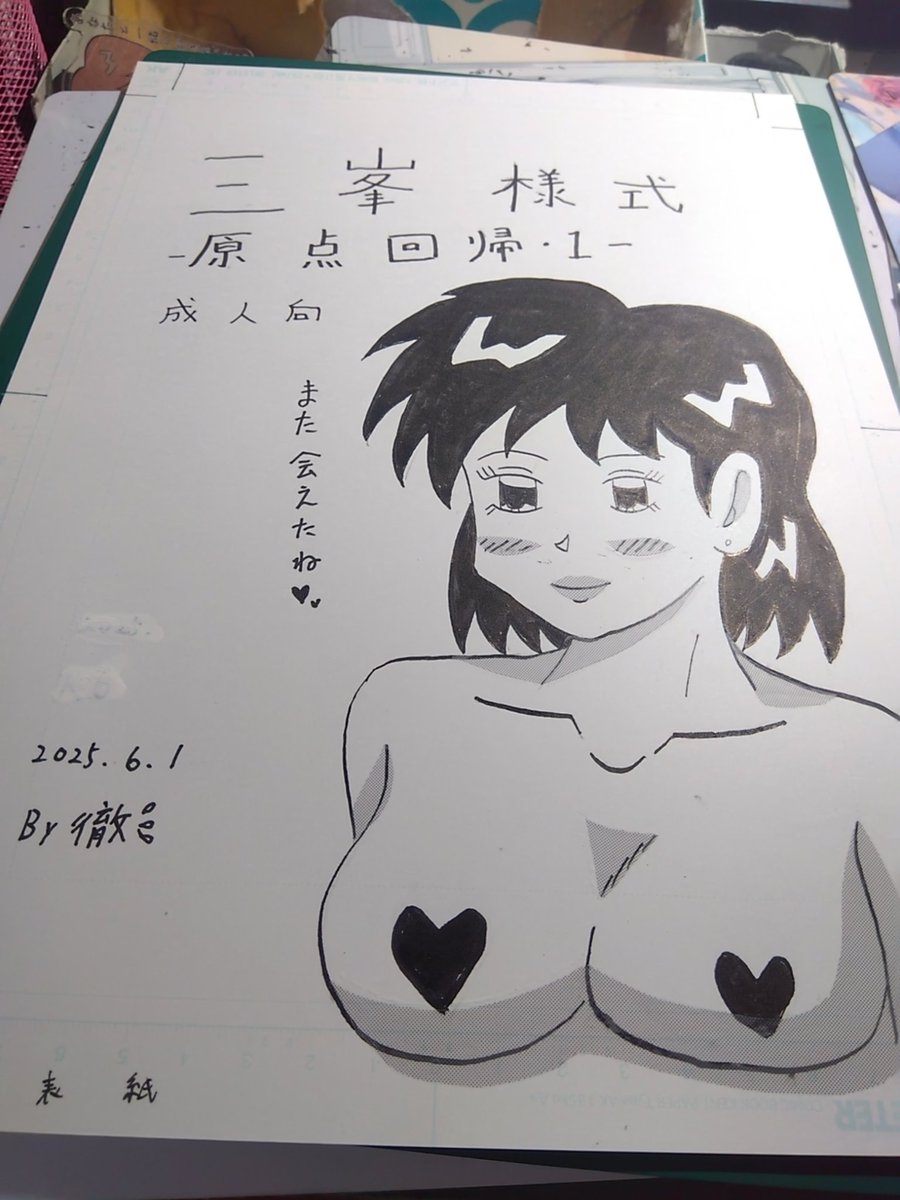 三峯様式
-原点回帰・1-
成人向
また会えたね♥♥
2025.6.1
By 徹呂
表紙